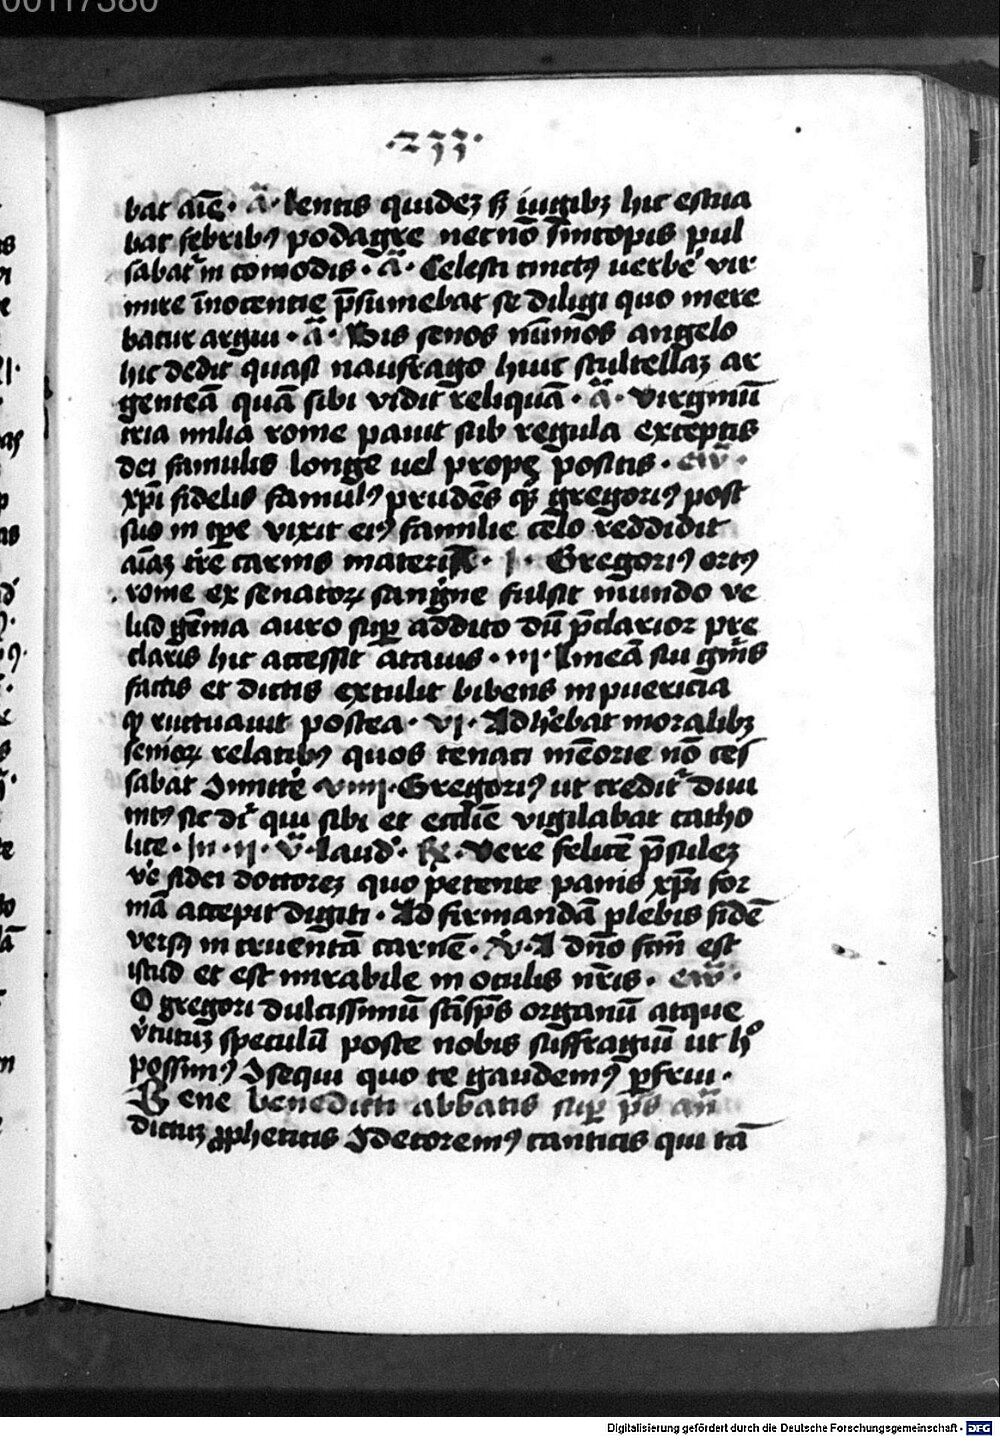 00117380
·233·
bat aīe · ā · Lentis quidez sȝ iugibȝ hic estua
bat febribꝰ podagre necnō sincopis pul
sabat᷑ in comodis · ā · Celesti cinctꝰ uerbē vir
mire īnocentie p̄sumebat se diligi quo mere
batur argui · ā · Bis senos nūmos angelo
hic dedit quasi naufrago huic scultellaȝ ar
genteā quā sibi vidit reliquā · ā · Virginū
tria milia rome pauit sub regula exceptis
dei famulis longe uel prope positis · ew̄ ·
xp̄i fidelis famulꝰ prudēs qȝ gregoriꝰ post
suo in tp̄e vixit eiꝰ familie celo reddidit
aīaȝ tr̄e carnis materiā · I · Gregoriꝰ ortꝰ
rome ex senatoꝝ sangine fulsit mundo ve
lud gēma auro sup̄ addito dū p̄clarior pre
claris hic accessit atauis · iii · Lineā su gm̄is
factis et dictis extulit bibens in puericia
qȝ ructuauit postea · vi · Adh̄ebat moralibȝ
senioꝝ relatibꝰ quos tenaci mēorie nō ces
sabat Īnitt̄e · viiii · Gregoriꝰ ut credit᷑ diui
nitꝰ sic dr̄ qui sibi et eccl̄ie vigilabat catho
lice · In · ii · v̄ · laud᷑ · ℟ · Vere felicē p̄sulez
v̄e fidei doctorez quo petente panis xp̄i for
mā accepit digiti · Ad firmandā plebis fidē
versꝰ in cruentā carnē · ℣ · A dn̄o fc̄m est
istud et est mirabile in oculis nr̄is · ew̄ ·
O gregori dulcissimū sc̄i sp̄s organū atque
v̄tutuȝ speculū posce nobis suffragiū ut h̊
possimꝰ Īsequi quo te gaudemꝰ ꝑfrui ·
Bene benedicti abbatis sup̄ p̄s an̄
dictuȝ ꝓpheticis Īdecoremꝰ canticis qui tā
Digitalisierung gefördert durch die Deutsche Forschungsgemeinschaft · DFG